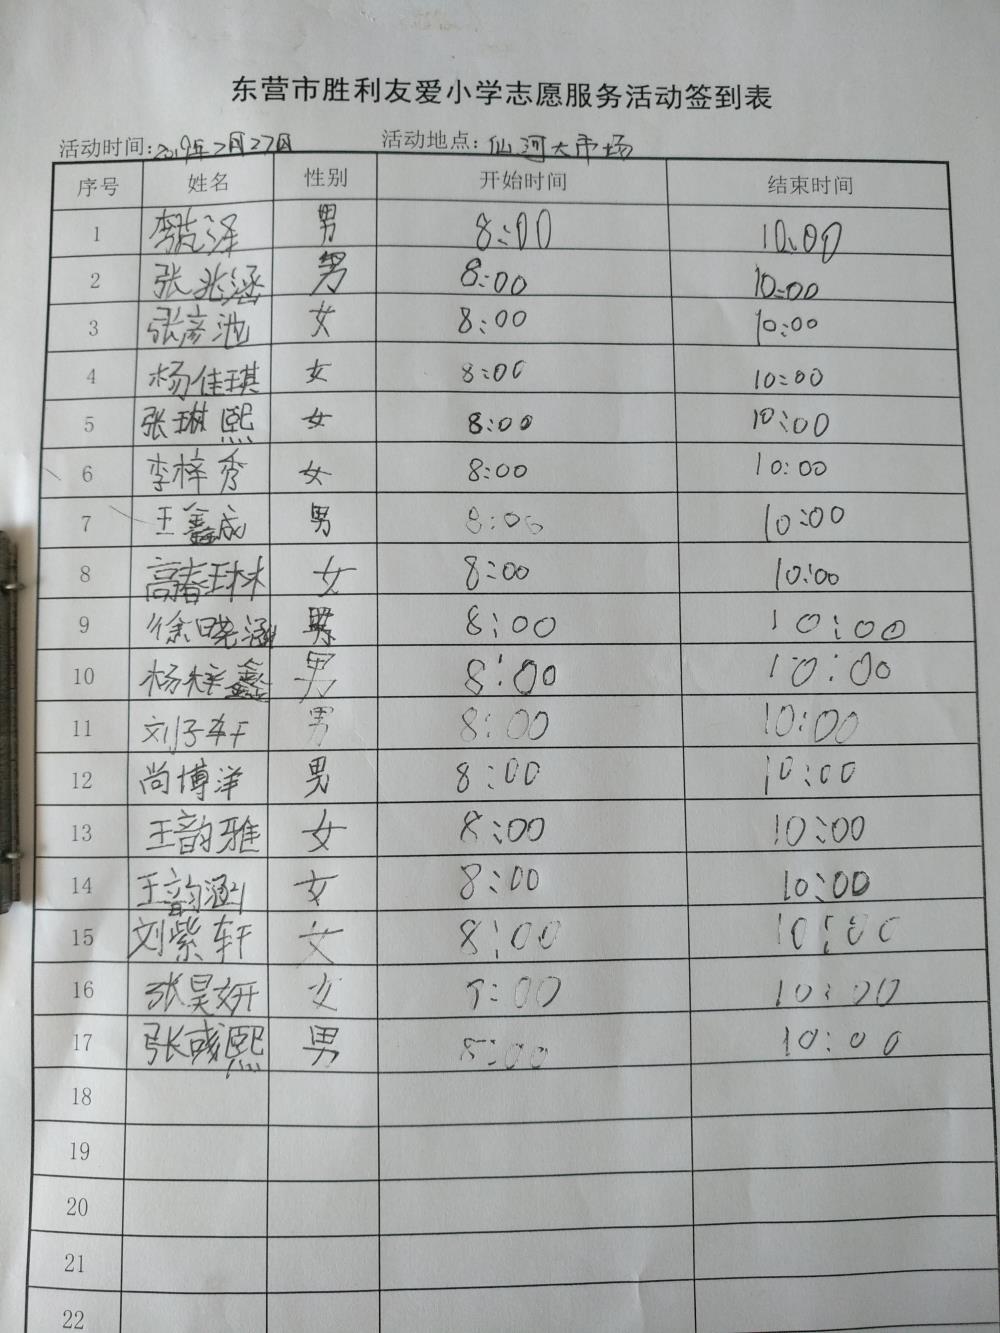 东营市胜利友爱小学志愿服务活动签到表
活动时间:2019年2月27日 活动地点:仙河大市场
序号 姓名 性别 开始时间 结束时间
1 泽 男 8:00 10:00
2 张兆涵 男 8:00 10:00
3 张彦池 女 8:00 10:00
4 杨佳琪 女 8:00 10:00
5 张琳熙 女 8:00 10:00
6 李梓秀 女 8:00 10:00
7 王鑫成 男 8:00 10:00
8 高春琳 女 8:00 10:00
9 徐晓涵 男 8:00 10:00
10 杨梓鑫 男 8:00 10:00
11 刘子轩 男 8:00 10:00
12 尚博洋 男 8:00 10:00
13 王韵雅 女 8:00 10:00
14 王韵涵 女 8:00 10:00
15 刘紫轩 女 8:00 10:00
16 张昊妍 女 :00 10:00
17 张彧熙 男 8:00 10:00
18
19
20
21
22